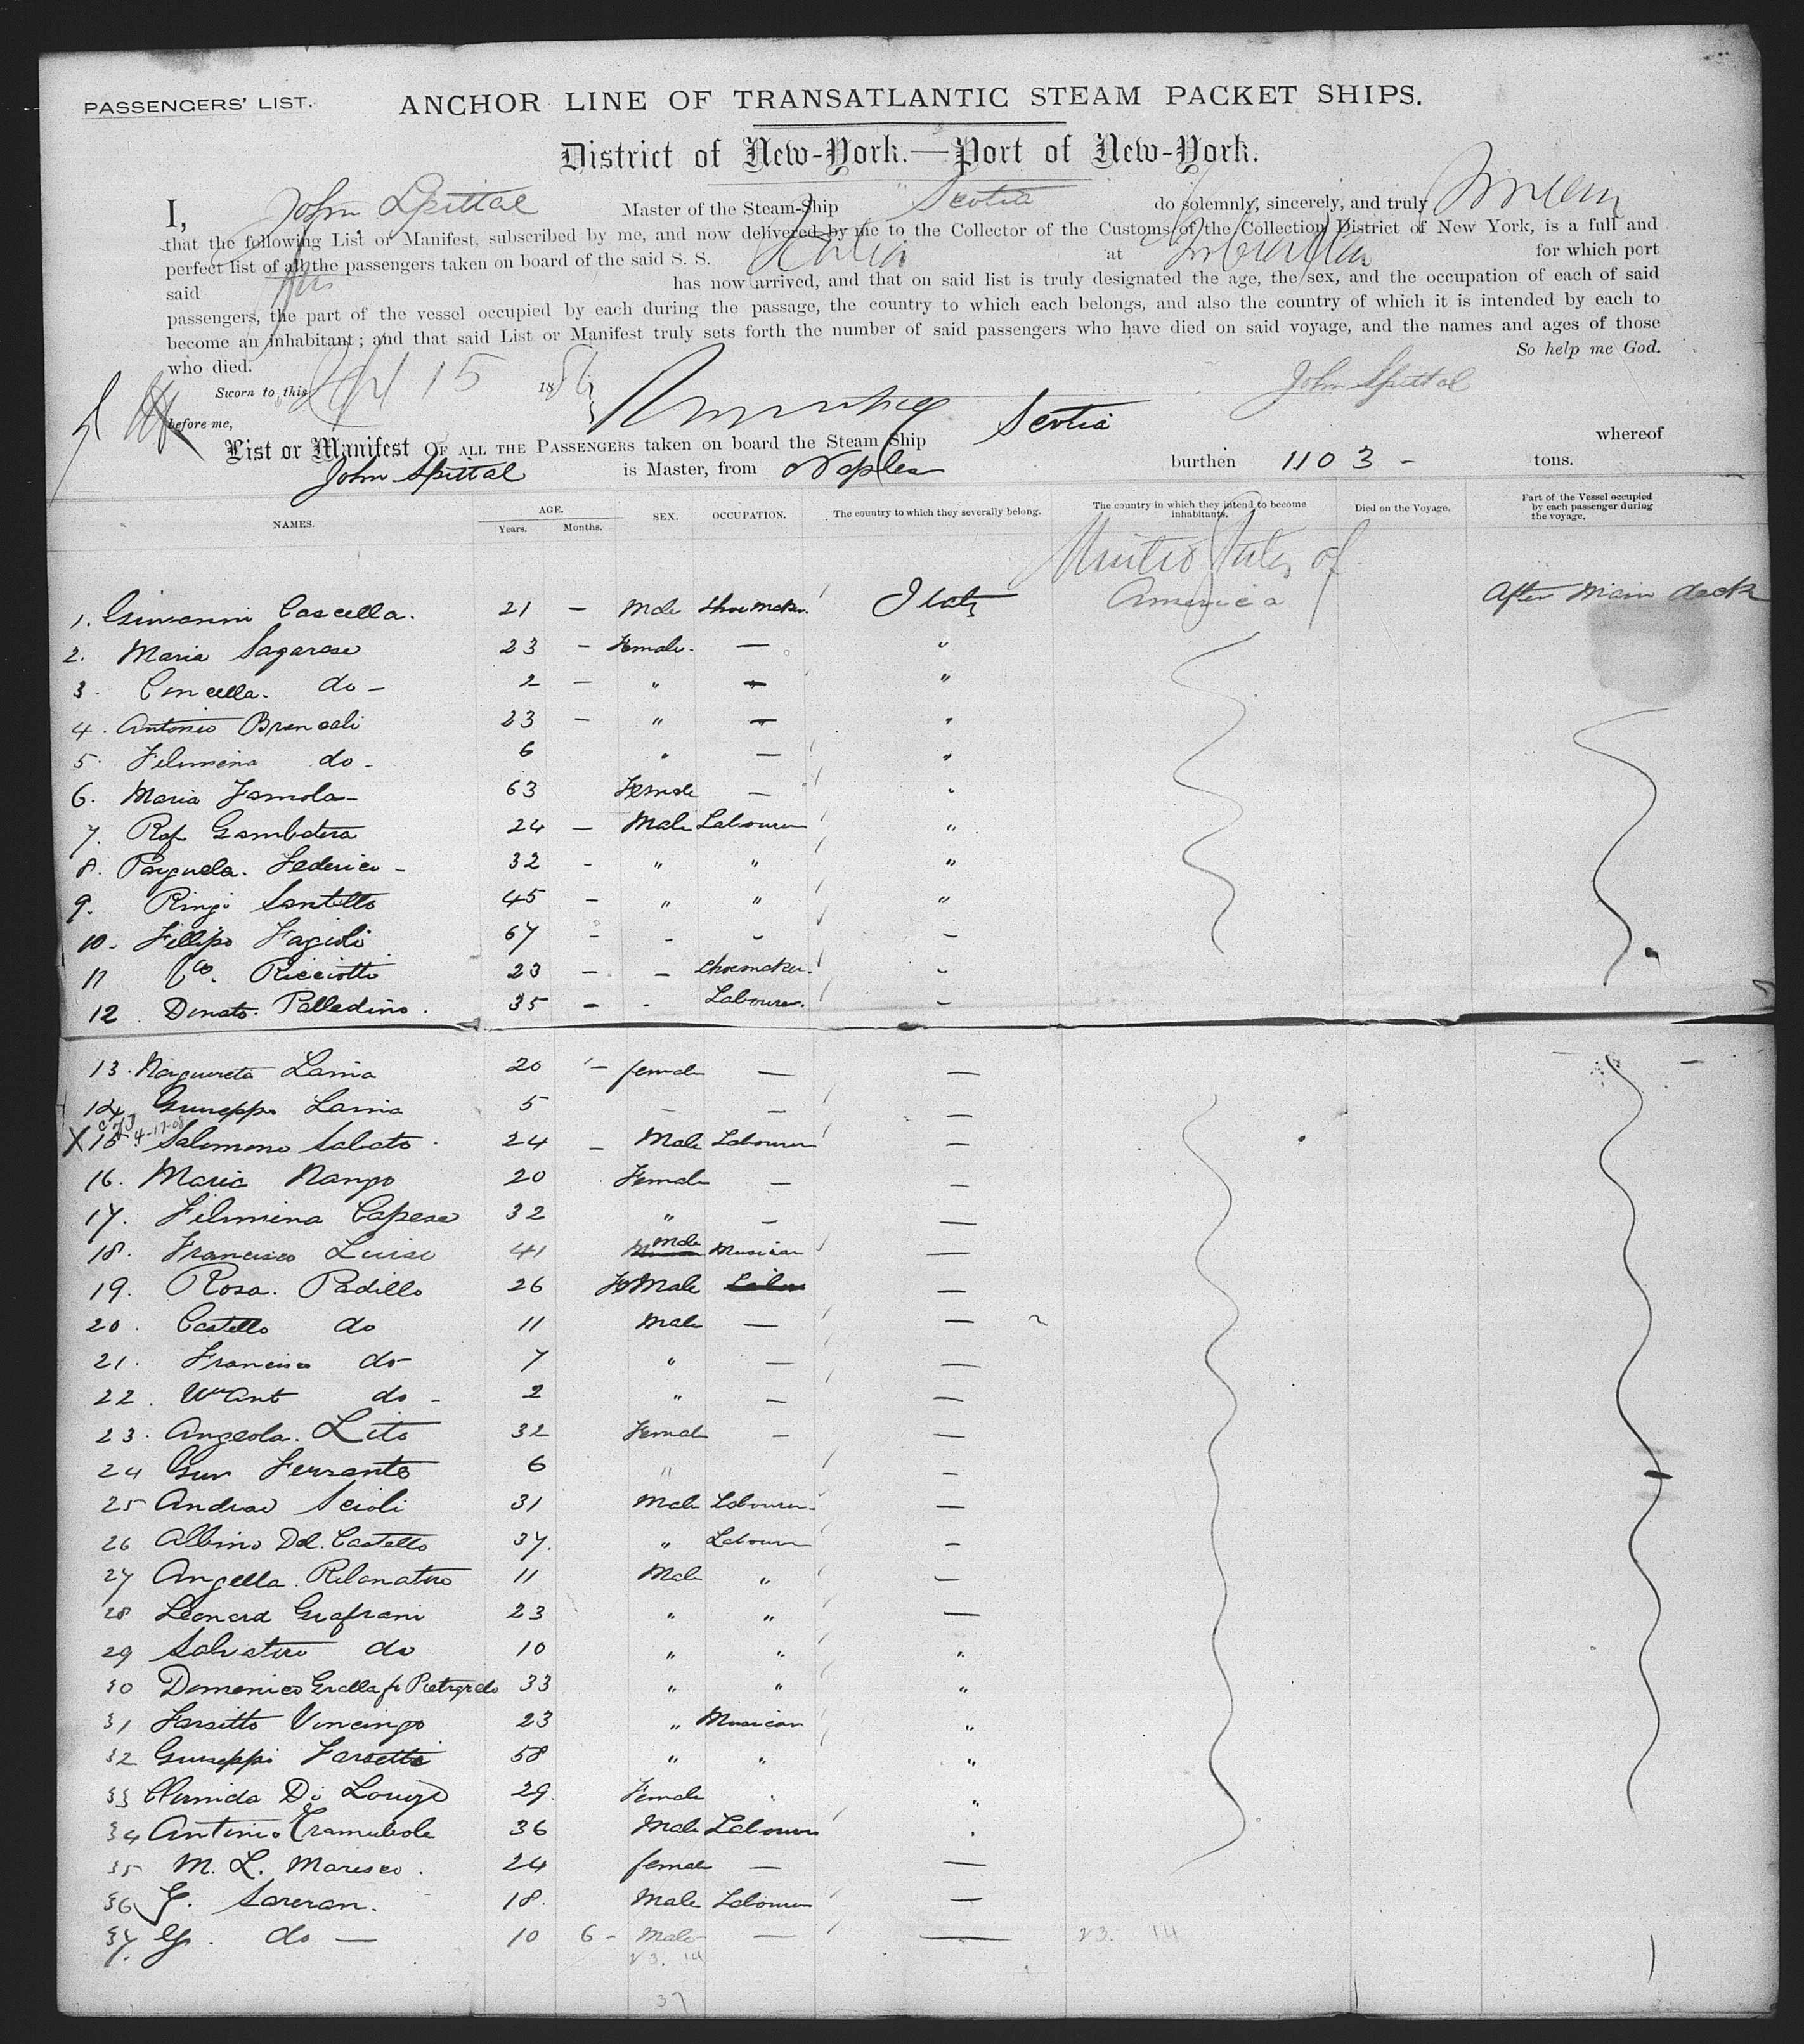 PASSENGERS' LIST.
ANCHOR LINE OF TRANSATLANTIC STEAM PACKET SHIPS.
District of New-York.—Port of New-York.
I, John Spittal Master of the Steam-Ship Scotia do solemnly, sincerely, and truly
that the following List or Manifest, subscribed by me, and now delivered by me to the Collector of the Customs of the Collection District of New York, is a full and
perfect list of all the passengers taken on board of the said S. S. Scotia at for which port
said has now arrived, and that on said list is truly designated the age, the sex, and the occupation of each of said
passengers, the part of the vessel occupied by each during the passage, the country to which each belongs, and also the country of which it is intended by each to
become an inhabitant; and that said List or Manifest truly sets forth the number of said passengers who have died on said voyage, and the names and ages of those
who died. So help me God.
Sworn to this 15 188 John Spittal
before me,
List or Manifest OF ALL THE PASSENGERS taken on board the Steam Ship Scotia whereof
John Spittal is Master, from Naples burthen 1103 - tons.
NAMES. AGE. Years. Months. SEX. OCCUPATION. The country to which they severally belong. The country in which they intend to become inhabitants. Died on the Voyage. Part of the Vessel occupied by each passenger during the voyage.
United States of
1. Giovanni Cascella. 21 — Male Shoemaker. Italy America After Main deck
2. Maria Sagarese 23 — Female. — "
3. Concella. do — 2 — " — "
4. Antonio Brencali 23 — " — "
5. Filumena do - 6 " — "
6. Maria Jamola 63 Female — "
7. Raf Gambatera 24 — Male Labourer "
8. Pasquela. Federico - 32 - " " "
9. Ringi Santillo 45 - " " "
10. Fillipo Fagioli 67 - - - -
11 Ricciotti 23 — — Shoemaker. -
12 Donato Palladino. 35 - - Labourer. -
13. Marguereta Lania 20 — female — —
14. Guiseppe Lania 5 — — —
X 15 4-17-08 Salomono Sabato. 24 — Male Labourer —
16. Maria Nanzo 20 Female — —
17. Filumena Capese 32 " — —
18. Francisco Luise 41 Male Musican —
19. Rosa. Padillo 26 FeMale —
20. Castello do 11 Male — —
21. Francisco do 7 " — —
22. do - 2 " — —
23. Angeola. Lito 32 Female — —
24 Ferrante 6 " —
25 Andrae Scioli 31 Male Labourer —
26 Albino Del. Castello 37. " Labourer —
27 Angella. 11 Male " —
28 Leonard Grafrani 23 " " —
29 Salvatore do 10 " " "
30 Domenico 33 " " "
31 Farsitto Vincingo 23 " Musican "
32 Guiseppi Farsetti 58 " " "
33 Di Louigi 29. Female " "
34 Antonio 36 Male Labourer "
35 M. L. Maresco. 24 female — —
36 G. Sareran. 18. Male Labourer —
37. G. do — 10 6 - Male — — 23. 14
23. 14
37